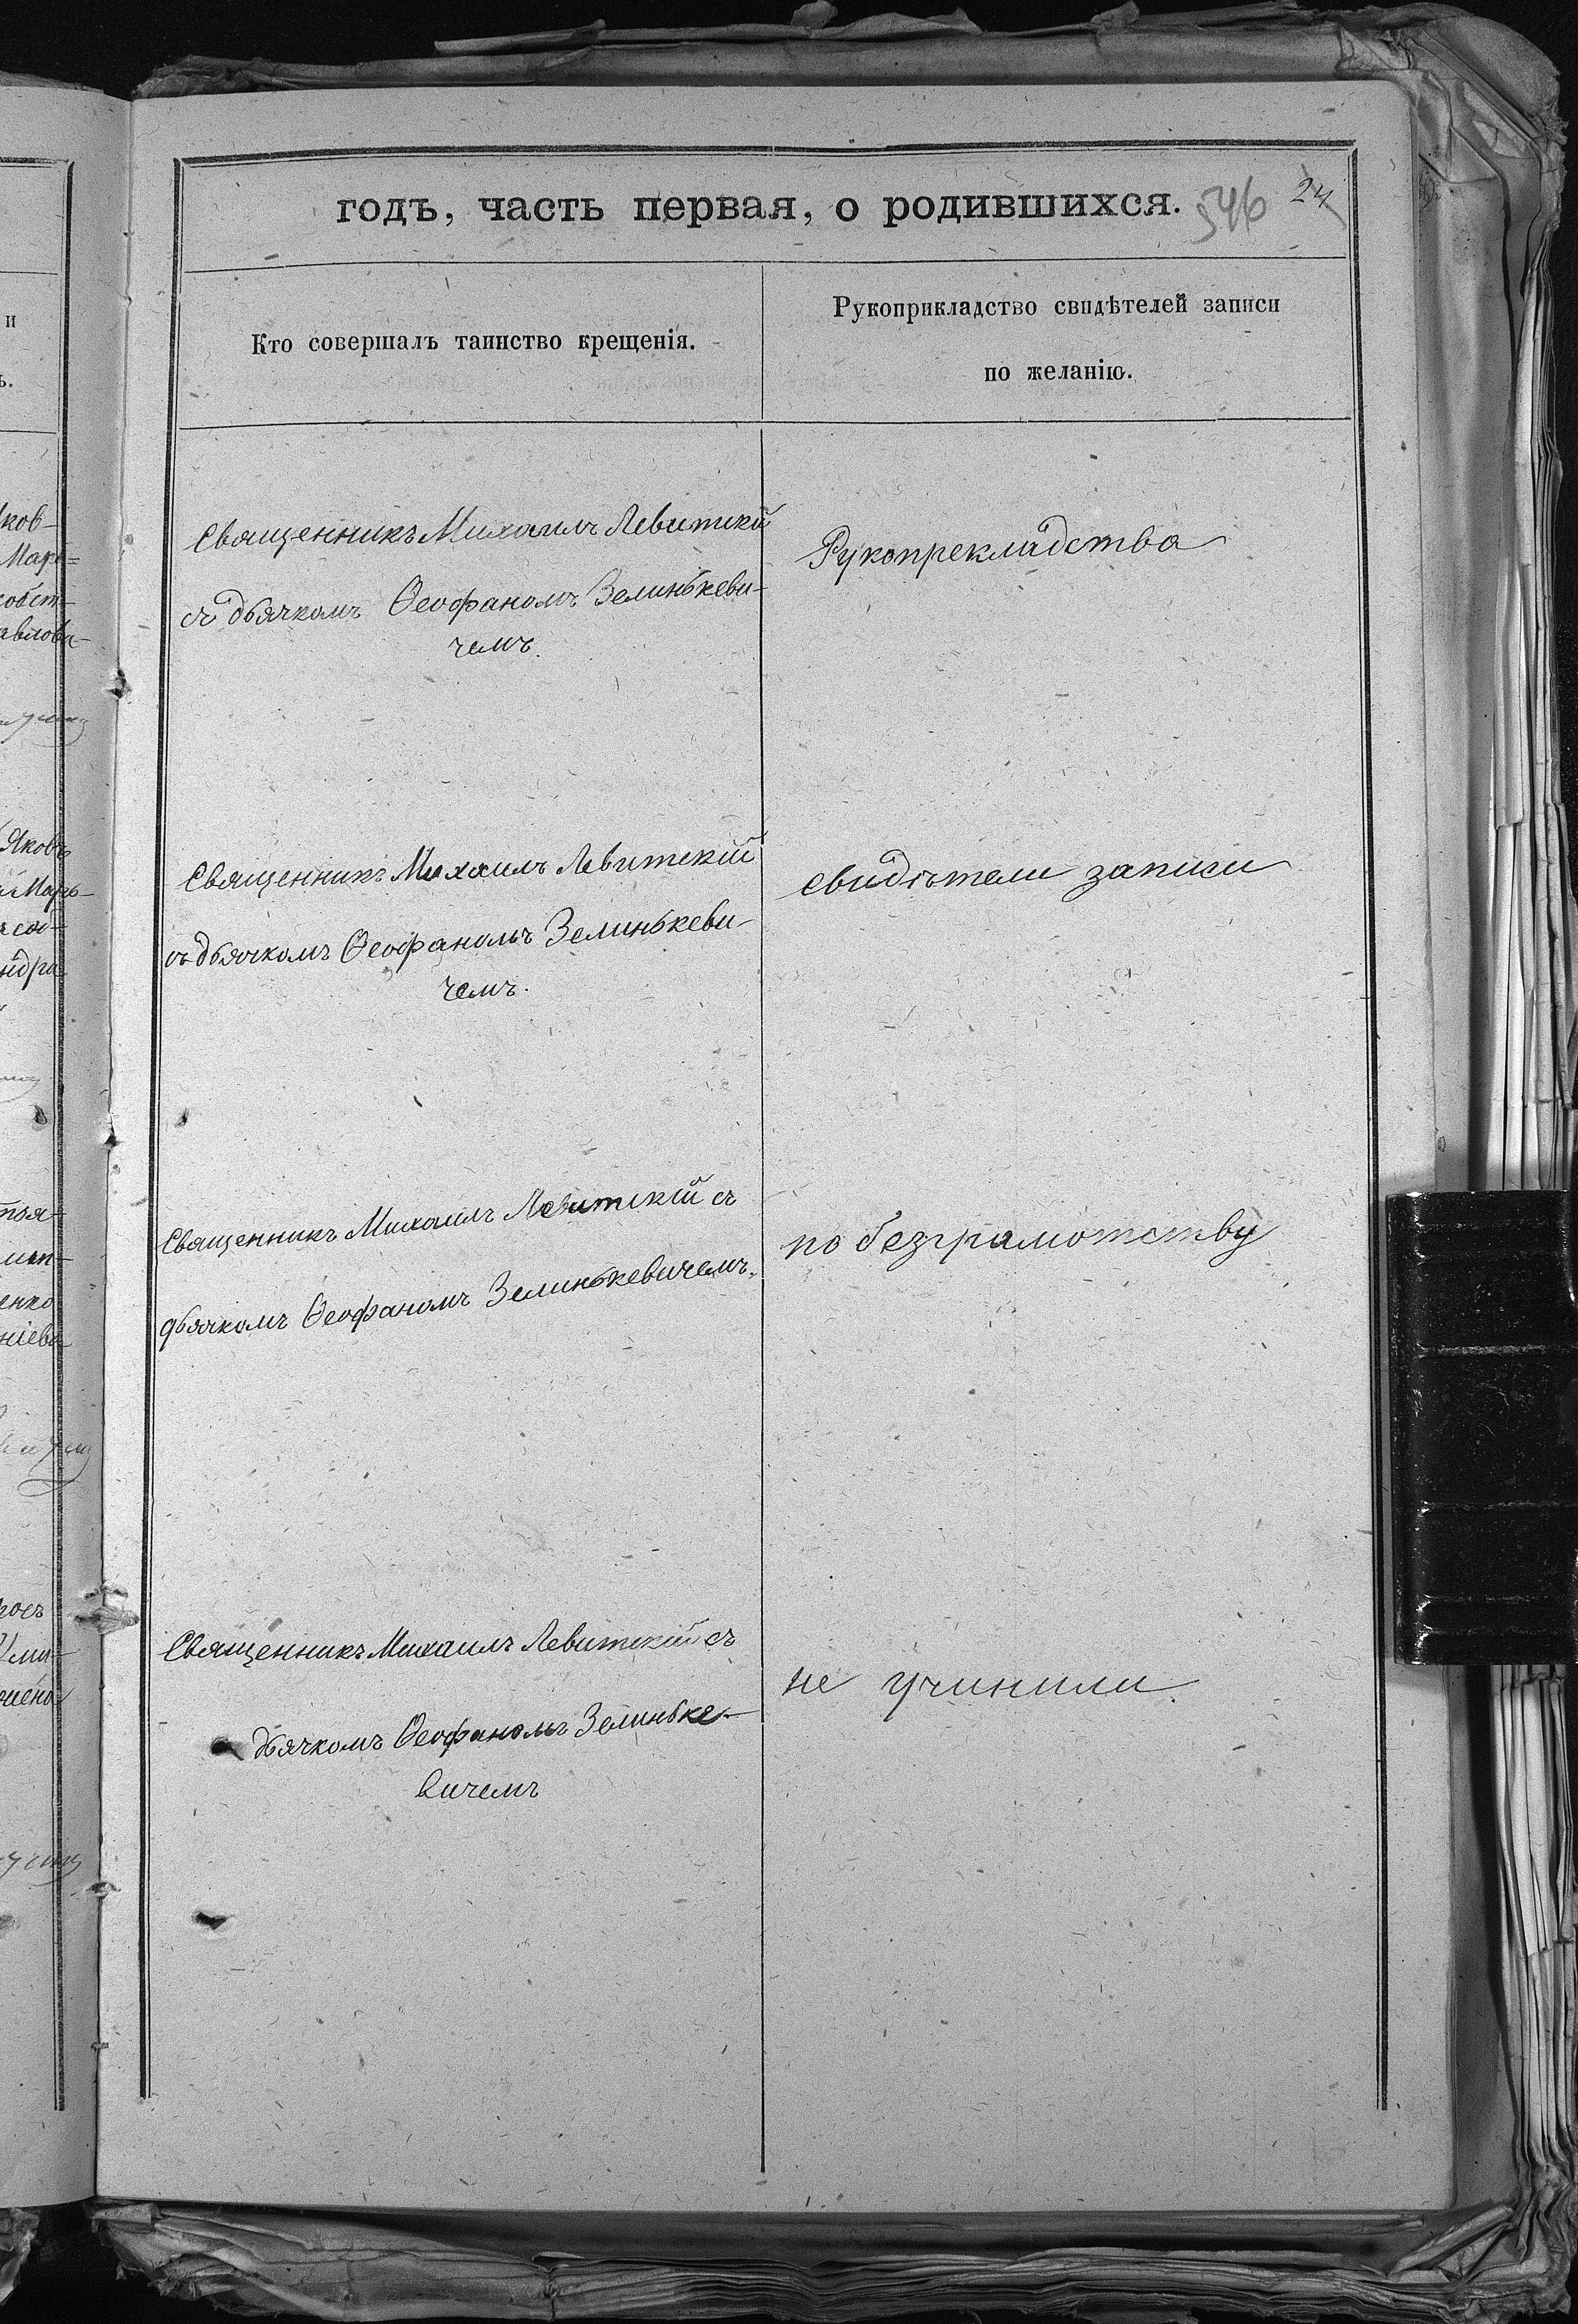 годъ, часть первая, о родившихся.
546
24
Кто совершалъ таинство крещенія.
Рукоприкладство свидѣтелей записи
по желанію.
Священникъ Михаилъ Левитскій
съ дьячкомъ Ѳеофаномъ Зелинькеви-
чемъ.
Рукопрекладства
Священникъ Михаилъ Левитскій
съ дьячкомъ Ѳеофаномъ Зелинькеви-
чемъ.
свидѣтели записи
Священникъ Михаилъ Левитскій съ
дьячкомъ Ѳеофаномъ Зелинькевичемъ.
по безграмотству
Священникъ Михаилъ Левитскій съ
дьячкомъ Ѳеофаномъ Зелиньке-
вичемъ
не учинили.